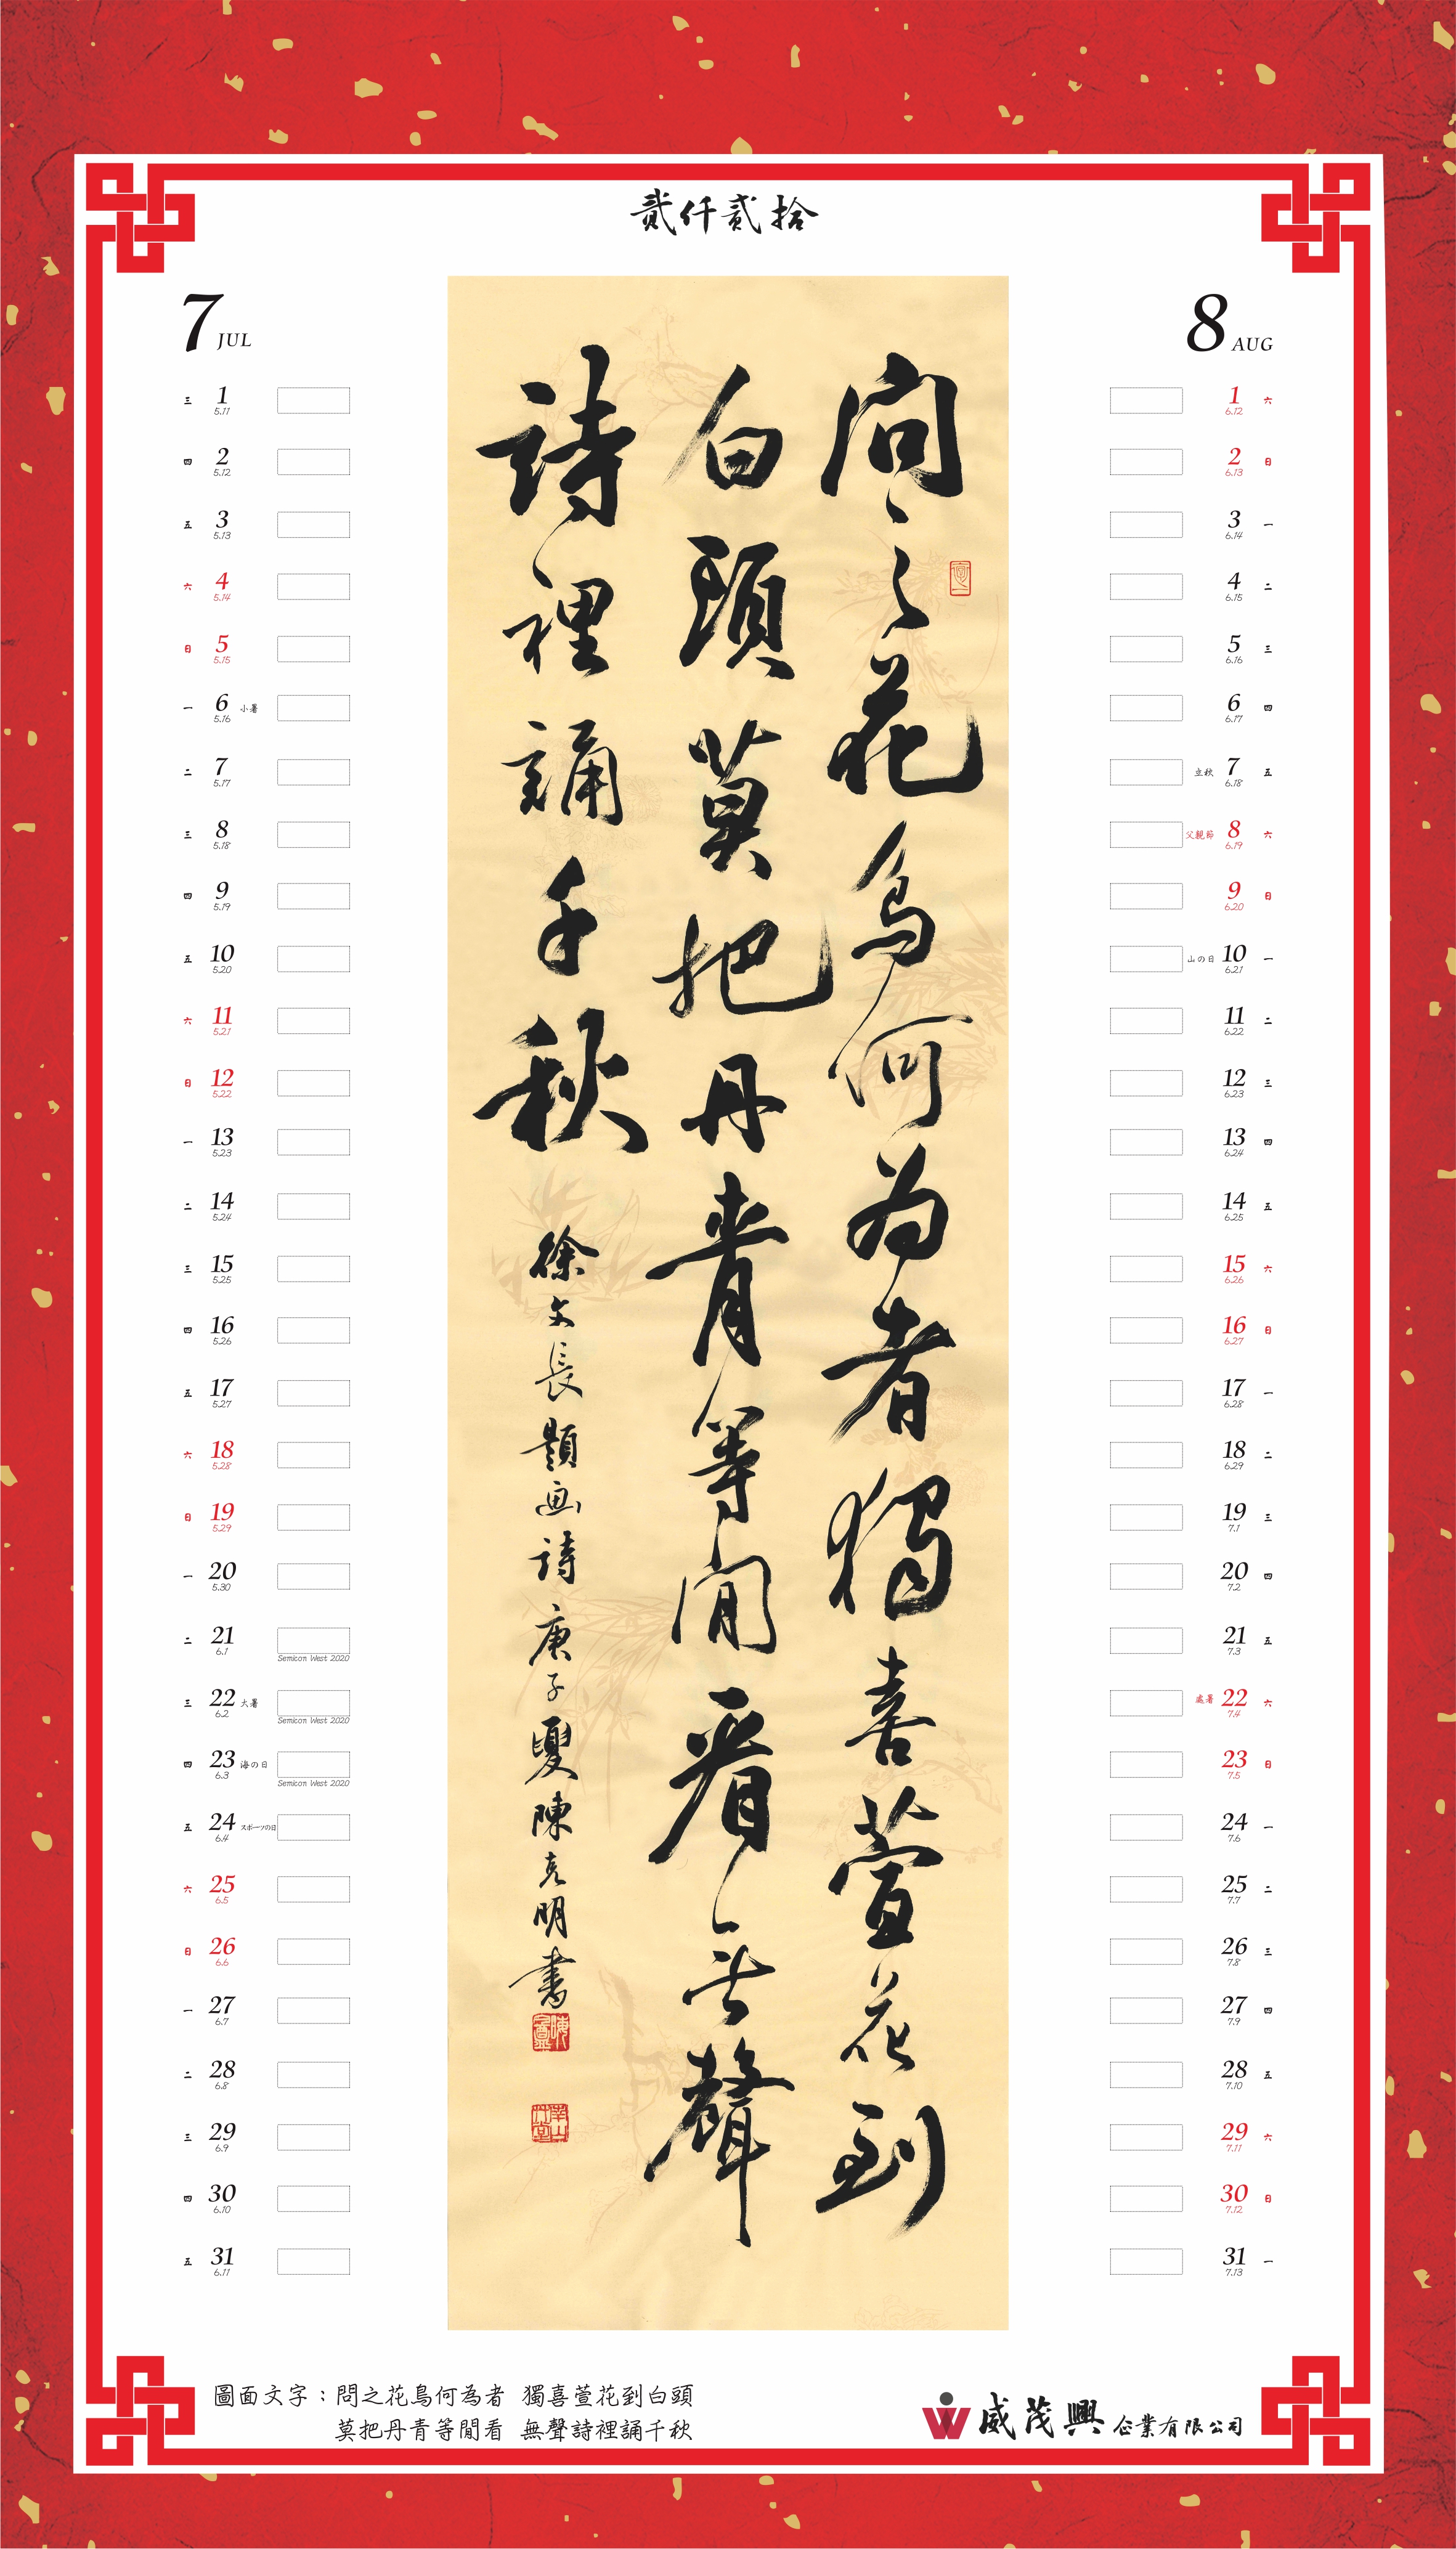 貳仟貳拾
7 JUL
三 1 5.11
四 2 5.12
五 3 5.13
六 4 5.14
日 5 5.15
一 6 5.16 小暑
二 7 5.17
三 8 5.18
四 9 5.19
五 10 5.20
六 11 5.21
日 12 5.22
一 13 5.23
二 14 5.24
三 15 5.25
四 16 5.26
五 17 5.27
六 18 5.28
日 19 5.29
一 20 5.30
二 21 6.1 Semicon West 2020
三 22 6.2 大暑 Semicon West 2020
四 23 6.3 海の日 Semicon West 2020
五 24 6.4 スポーツの日
六 25 6.5
日 26 6.6
一 27 6.7
二 28 6.8
三 29 6.9
四 30 6.10
五 31 6.11
問之花鳥何為者獨喜萱花到
白頭莫把丹青等閒看無聲
詩裡誦千秋
徐文長題画詩庚子夏陳克明書
8 AUG
1 6.12 六
2 6.13 日
3 6.14 一
4 6.15 二
5 6.16 三
6 6.17 四
立秋 7 6.18 五
父親節 8 6.19 六
9 6.20 日
山の日 10 6.21 一
11 6.22 二
12 6.23 三
13 6.24 四
14 6.25 五
15 6.26 六
16 6.27 日
17 6.28 一
18 6.29 二
19 7.1 三
20 7.2 四
21 7.3 五
處暑 22 7.4 六
23 7.5 日
24 7.6 一
25 7.7 二
26 7.8 三
27 7.9 四
28 7.10 五
29 7.11 六
30 7.12 日
31 7.13 一
圖面文字：問之花鳥何為者 獨喜萱花到白頭
莫把丹青等閒看 無聲詩裡誦千秋
威茂興企業有限公司